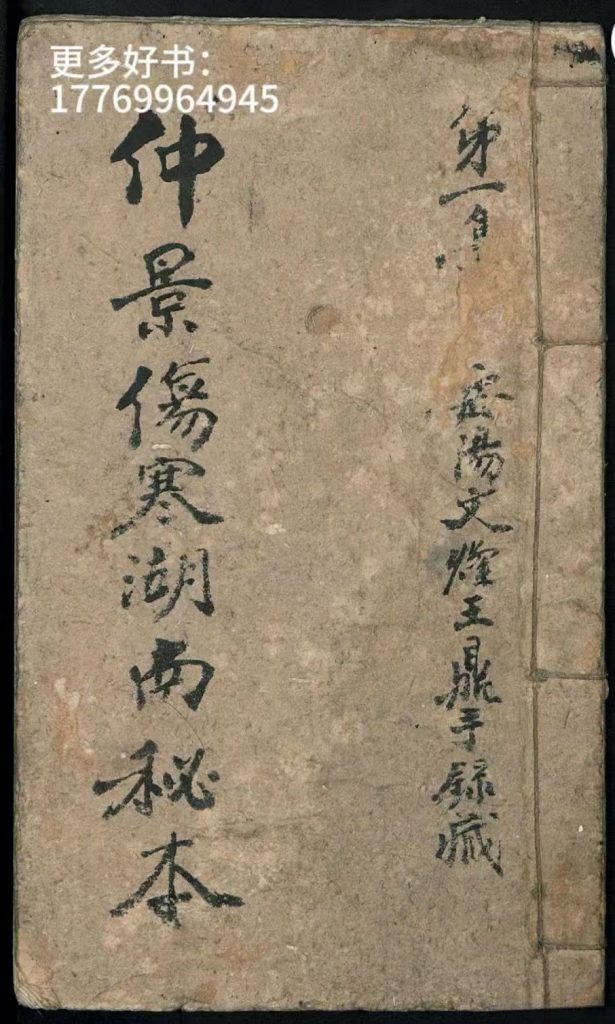 更多好书：
17769964945
第一集
陽文耀王鼎手錄藏
仲景傷寒湖南秘本